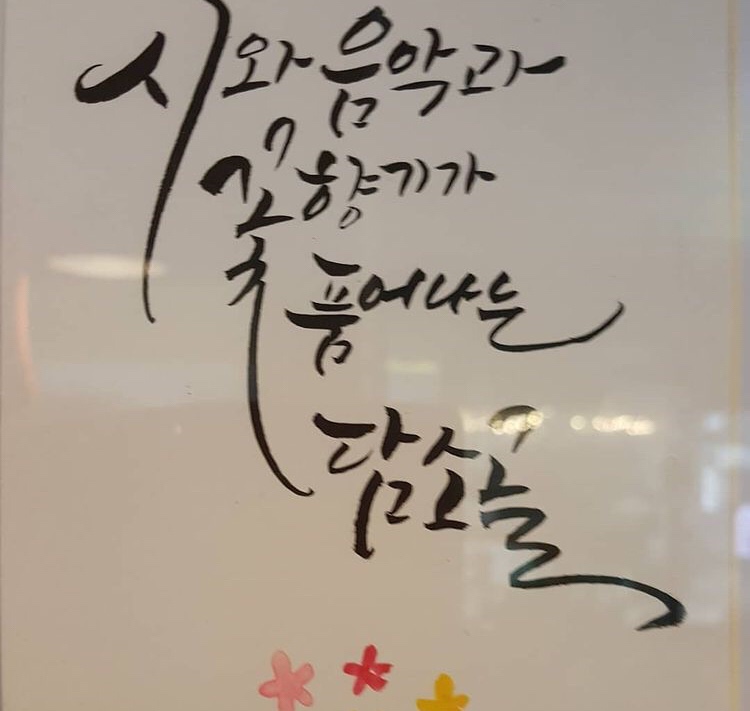 시와 음악과
꽃향기가
품어나는
담소골